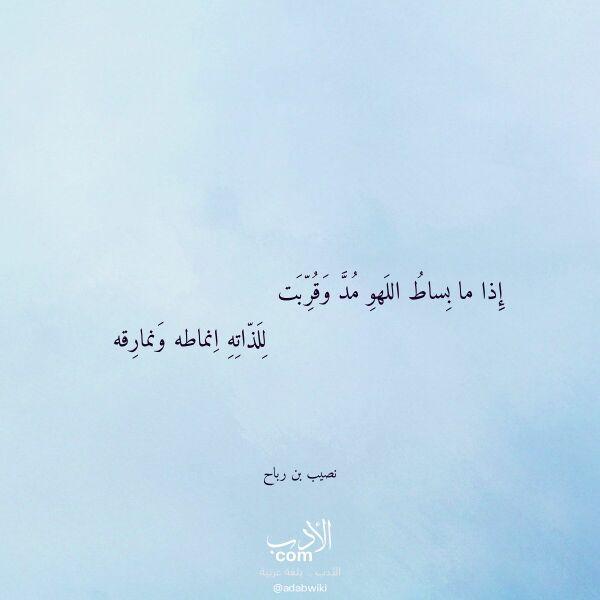 إِذا ما بِساطُ اللَهوِ مُدَّ وَقُرِّبَت
لِلَذّاتِهِ اِنماطه وَنمارِقه
نصيب بن رباح
الأدب
com
الأدب .. بلغة عربية
@adabwiki